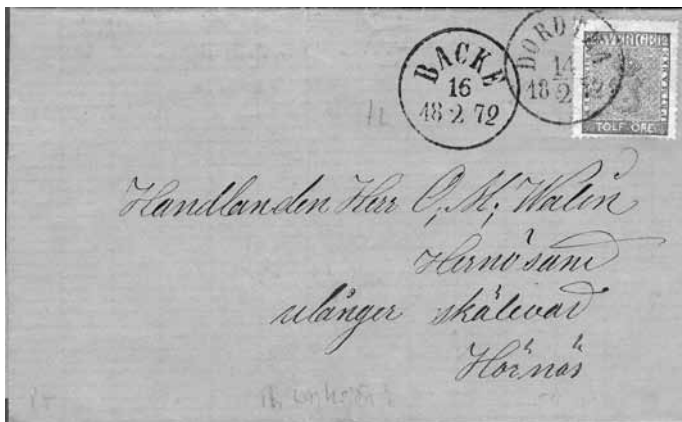 BACKE
16
18 2 72
DORDT
14
18 2 72
SVERIGE
TOLF ÖRE
12
Handlanden Herr O, M, Walin
Hernösand
ulånger skälevad
Hörnäs